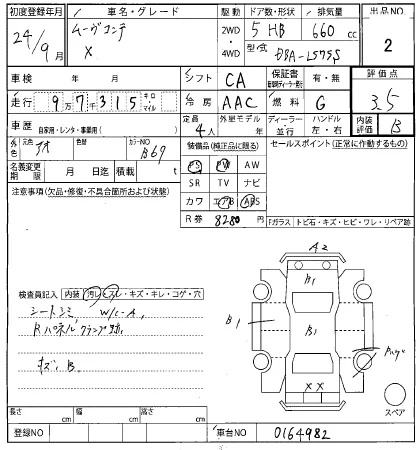 初度登録年月 車名・グレード 駆動 ドア数・形状 排気量 出品NO
24/9月 ムーヴコンテ X 2WD・4WD 5 HB 660 cc 2
型式 DBA-L575S
車検 年 月 シフト CA 保証書 有・無 評価点
走行 9万7千315 キロ マイル 冷房 AAC 燃料 G 3.5
車歴 自家用・レンタ・事業用( ) 定員 4人 外車モデル 年 ディーラー・並行 ハンドル 左・右 内装評価 B
外色 元色 アオ 色替 カラーNO B69 装備品(純正品に限る) セールスポイント(正常に作動するもの)
名義変更期限 月 日迄 積載 t PS PW AW
SR TV ナビ
注意事項(欠品・修復・不具合箇所および状態) カワ エアB ABS
R券 8280 円
Fガラス トビ石・キズ・ヒビ・ワレ・リペア跡
A2
B1
B1 B1
検査員記入 内装 汚レ・スレ・キズ・キレ・コゲ・穴
シートシミ W/C-A,
Rパネルクランプ跡,
キズ, B.
XX
スペア
長さ cm 幅 cm 高さ cm
登録NO 車台NO 0164982